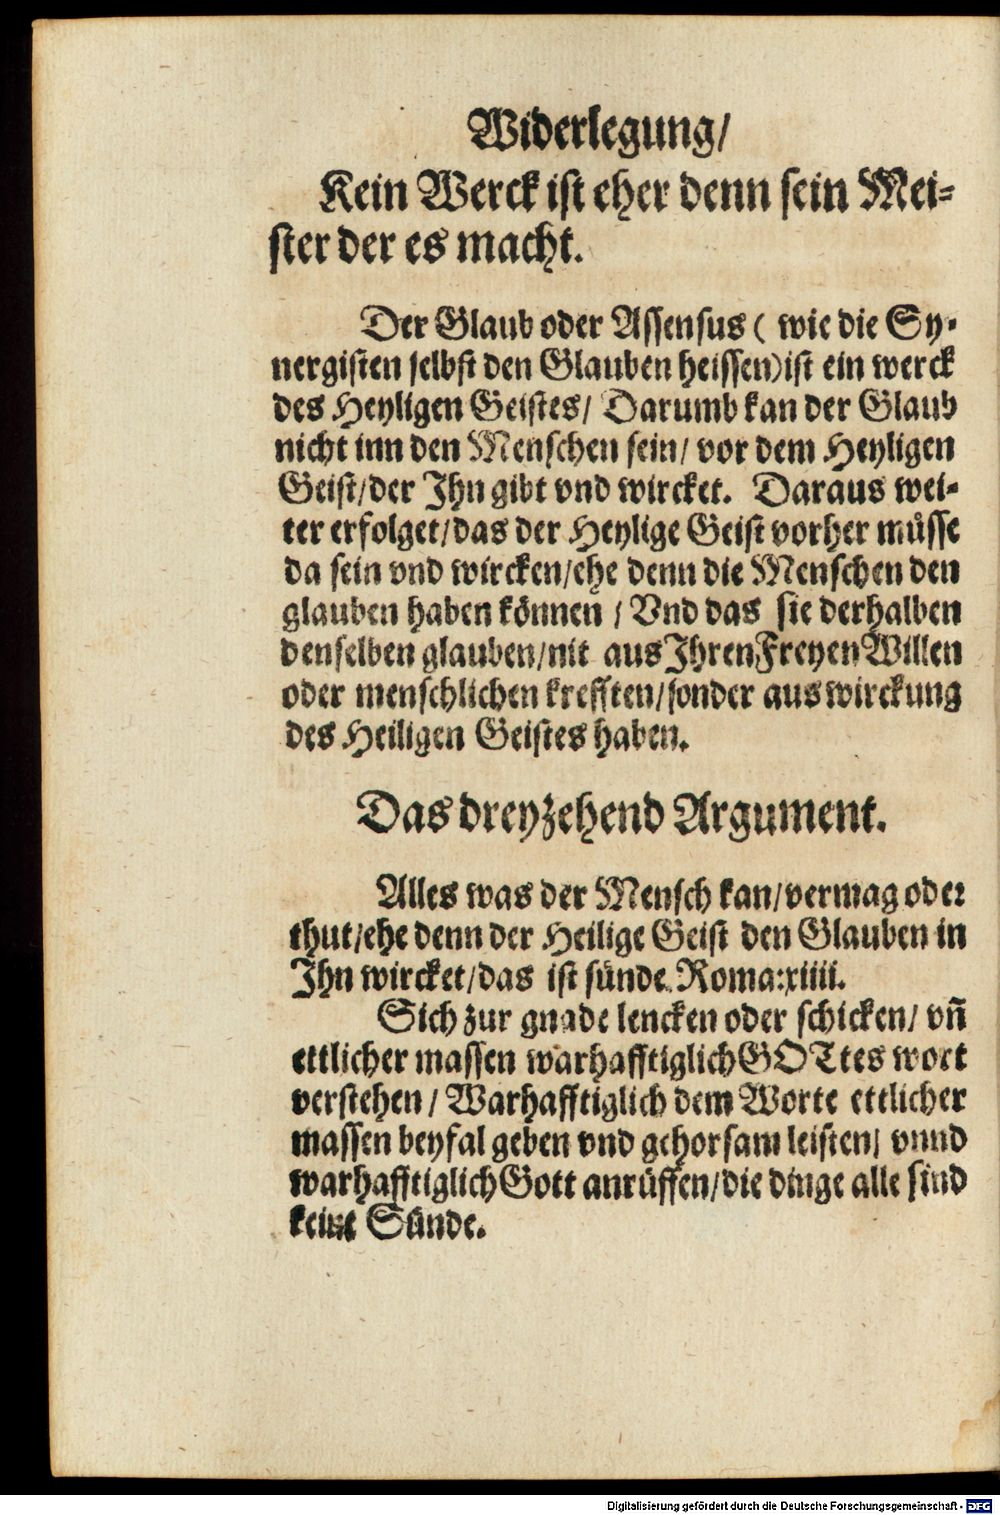 Widerlegung/
Kein Werck ist eher denn sein Mei-
ster der es macht.
Der Glaub oder Assensus ( wie die Sy-
nergisten selbst den Glauben heissen) ist ein werck
des Heyligen Geistes/ Darumb kan der Glaub
nicht inn den Menschen sein/ vor dem Heyligen
Geist/der Ihn gibt vnd wircket. Daraus wei-
ter erfolget/das der Heylige Geist vorher müsse
da sein vnd wircken/ehe denn die Menschen den
glauben haben können / Vnd das sie derhalben
denselben glauben/nit aus Ihren Freyen Willen
oder menschlichen krefften/sonder aus wirckung
des Heiligen Geistes haben.
Das dreyzehend Argument.
Alles was der Mensch kan/vermag oder
thut/ehe denn der Heilige Geist den Glauben in
Ihn wircket/das ist sünde. Roma:xiiii.
Sich zur gnade lencken oder schicken/ vñ
ettlicher massen warhafftiglich GOTtes wort
verstehen / Warhafftiglich dem Worte ettlicher
massen beyfal geben vnd gehorsam leisten/ vnnd
warhafftiglich Gott anrüffen/die dinge alle sind
keine Sünde.
Digitalisierung gefördert durch die Deutsche Forschungsgemeinschaft - DFG